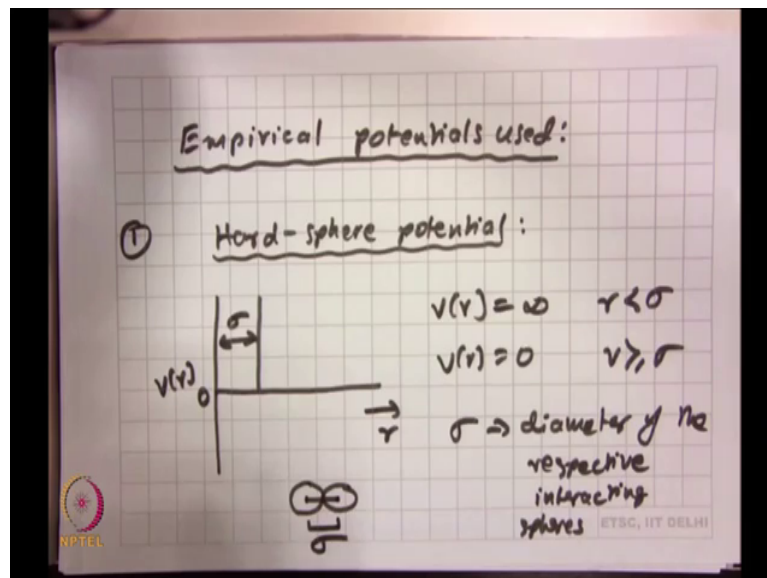 Empirical potentials used:
① Hard-sphere potential:
σ
V(r) = ∞ r < σ
V(r)
0
V(r) = 0 r ≥ σ
r
σ ⇒ diameter of the
respective
interacting
spheres
σ
ETSC, IIT DELHI
NPTEL